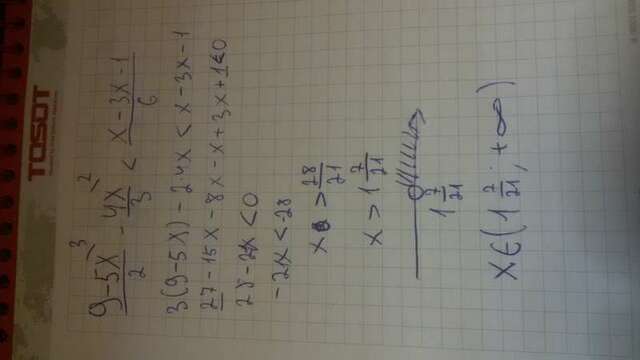 TOSOT
(9-5x)/2 ³ - 4x/3 ² < (x-3x-1)/6
3(9-5x)-2·4x < x-3x-1
27-15x-8x-x+3x+1<0
28-21x<0
-21x<-28
x > 28/21
x > 1 7/21
1 7/21
x∈(1 7/21; +∞)